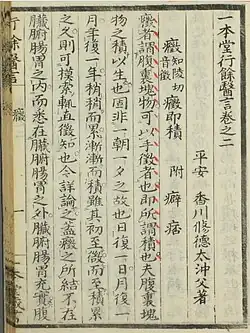 一本堂行餘醫言卷之二
平安 香川修德太沖父著
癥 知陵切音徵 癥即積 附 癖 痞
癥者謂腹裏塊物可以手徵者也即所謂積也夫腹裏塊
物之積以生也固非一朝一夕之故也日復一日月復一
月年復一年稍稍而累漸漸而積雖其初至微而至積累
之久則可摸索輒直徵知也今詳論之蓋癥之所結不在
臟腑腸胃之内而悉在臟腑腸胃之外臟腑腸胃充實腹
行餘醫言 癥 一